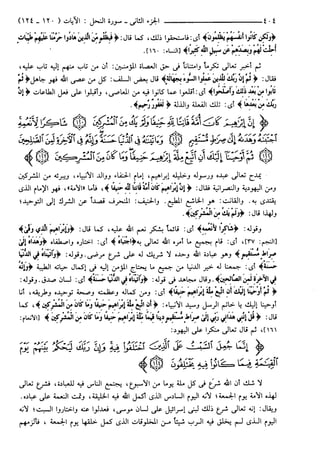 ٤٠٤ الجزء الثاني - سورة النحل: الآيات (١٢٠ - ١٢٤)
﴿ولكن كانوا أنفسهم يظلمون﴾ أي: فاستحقوا ذلك، كما قال: ﴿فبظلم من الذين هادوا حرمنا عليهم طيبات
أحلت لهم وبصدهم عن سبيل الله كثيرا﴾ [النساء: ١٦٠].
ثم أخبر تعالى تكرماً وامتناناً في حق العصاة المؤمنين: أن من تاب منهم إليه تاب عليه،
فقال: ﴿ثم إن ربك للذين عملوا السوء بجهالة﴾ قال بعض السلف: كل من عصى الله فهو جاهل ﴿ثم
تابوا من بعد ذلك وأصلحوا﴾ أي: أقلعوا عما كانوا فيه من المعاصي، وأقبلوا على فعل الطاعات ﴿إن
ربك من بعدها﴾ أي: تلك الفعلة والذلة ﴿لغفور رحيم﴾.
﴿إن إبراهيم كان أمة قانتا لله حنيفا ولم يك من المشركين شاكرا لأنعمه
اجتباه وهداه إلى صراط مستقيم وآتيناه في الدنيا حسنة وإنه في الآخرة لمن الصالحين
ثم أوحينا إليك أن اتبع ملة إبراهيم حنيفا وما كان من المشركين﴾
يمدح تعالى عبده ورسوله وخليله إبراهيم، إمام الحنفاء ووالد الأنبياء، ويبرئه من المشركين
ومن اليهودية والنصرانية فقال: ﴿إن إبراهيم كان أمة قانتا لله حنيفا﴾، فأما الأمة، فهو الإمام الذي
يقتدى به. والقانت: هو الخاشع المطيع. والحنيف: المنحرف قصداً عن الشرك إلى التوحيد؛
ولهذا قال: ﴿ولم يك من المشركين﴾.
وقوله: ﴿شاكرا لأنعمه﴾ أي: قائماً بشكر نعم الله عليه، كما قال: ﴿وإبراهيم الذي وفى﴾
[النجم: ٣٧]، أي: قام بجميع ما أمره الله تعالى به ﴿اجتباه﴾ أي: اختاره واصطفاه ﴿وهداه إلى
صراط مستقيم﴾ وهو عبادة الله وحده لا شريك له على شرع مرضي. وقوله: ﴿وآتيناه في الدنيا
حسنة﴾ أي: جمعنا له خير الدنيا من جميع ما يحتاج المؤمن إليه في إكمال حياته الطيبة ﴿وإنه
في الآخرة لمن الصالحين﴾. وقال مجاهد في قوله: ﴿وآتيناه في الدنيا حسنة﴾ أي: لسان صدق. وقوله:
﴿ثم أوحينا إليك أن اتبع ملة إبراهيم حنيفا﴾ أي: ومن كماله وعظمته وصحة توحيده وطريقه، أنا
أوحينا إليك يا خاتم الرسل وسيد الأنبياء: ﴿أن اتبع ملة إبراهيم حنيفا وما كان من المشركين﴾، كما
قال: ﴿قل إنني هداني ربي إلى صراط مستقيم دينا قيما ملة إبراهيم حنيفا وما كان من المشركين﴾ [الأنعام:
١٦١]، ثم قال تعالى منكراً على اليهود:
﴿إنما جعل السبت على الذين اختلفوا فيه وإن ربك ليحكم بينهم يوم
القيامة فيما كانوا فيه يختلفون﴾
لا شك أن الله شرع في كل ملة يوماً من الأسبوع، يجتمع الناس فيه للعبادة، فشرع تعالى
لهذه الأمة يوم الجمعة؛ لأنه اليوم السادس الذي أكمل الله فيه الخليقة، وتمت النعمة على عباده.
ويقال: إنه تعالى شرع ذلك لبني إسرائيل على لسان موسى، فعدلوا عنه واختاروا السبت؛ لأنه
اليوم الذي لم يخلق فيه الرب شيئاً من المخلوقات الذي كمل خلقها يوم الجمعة، فألزمهم